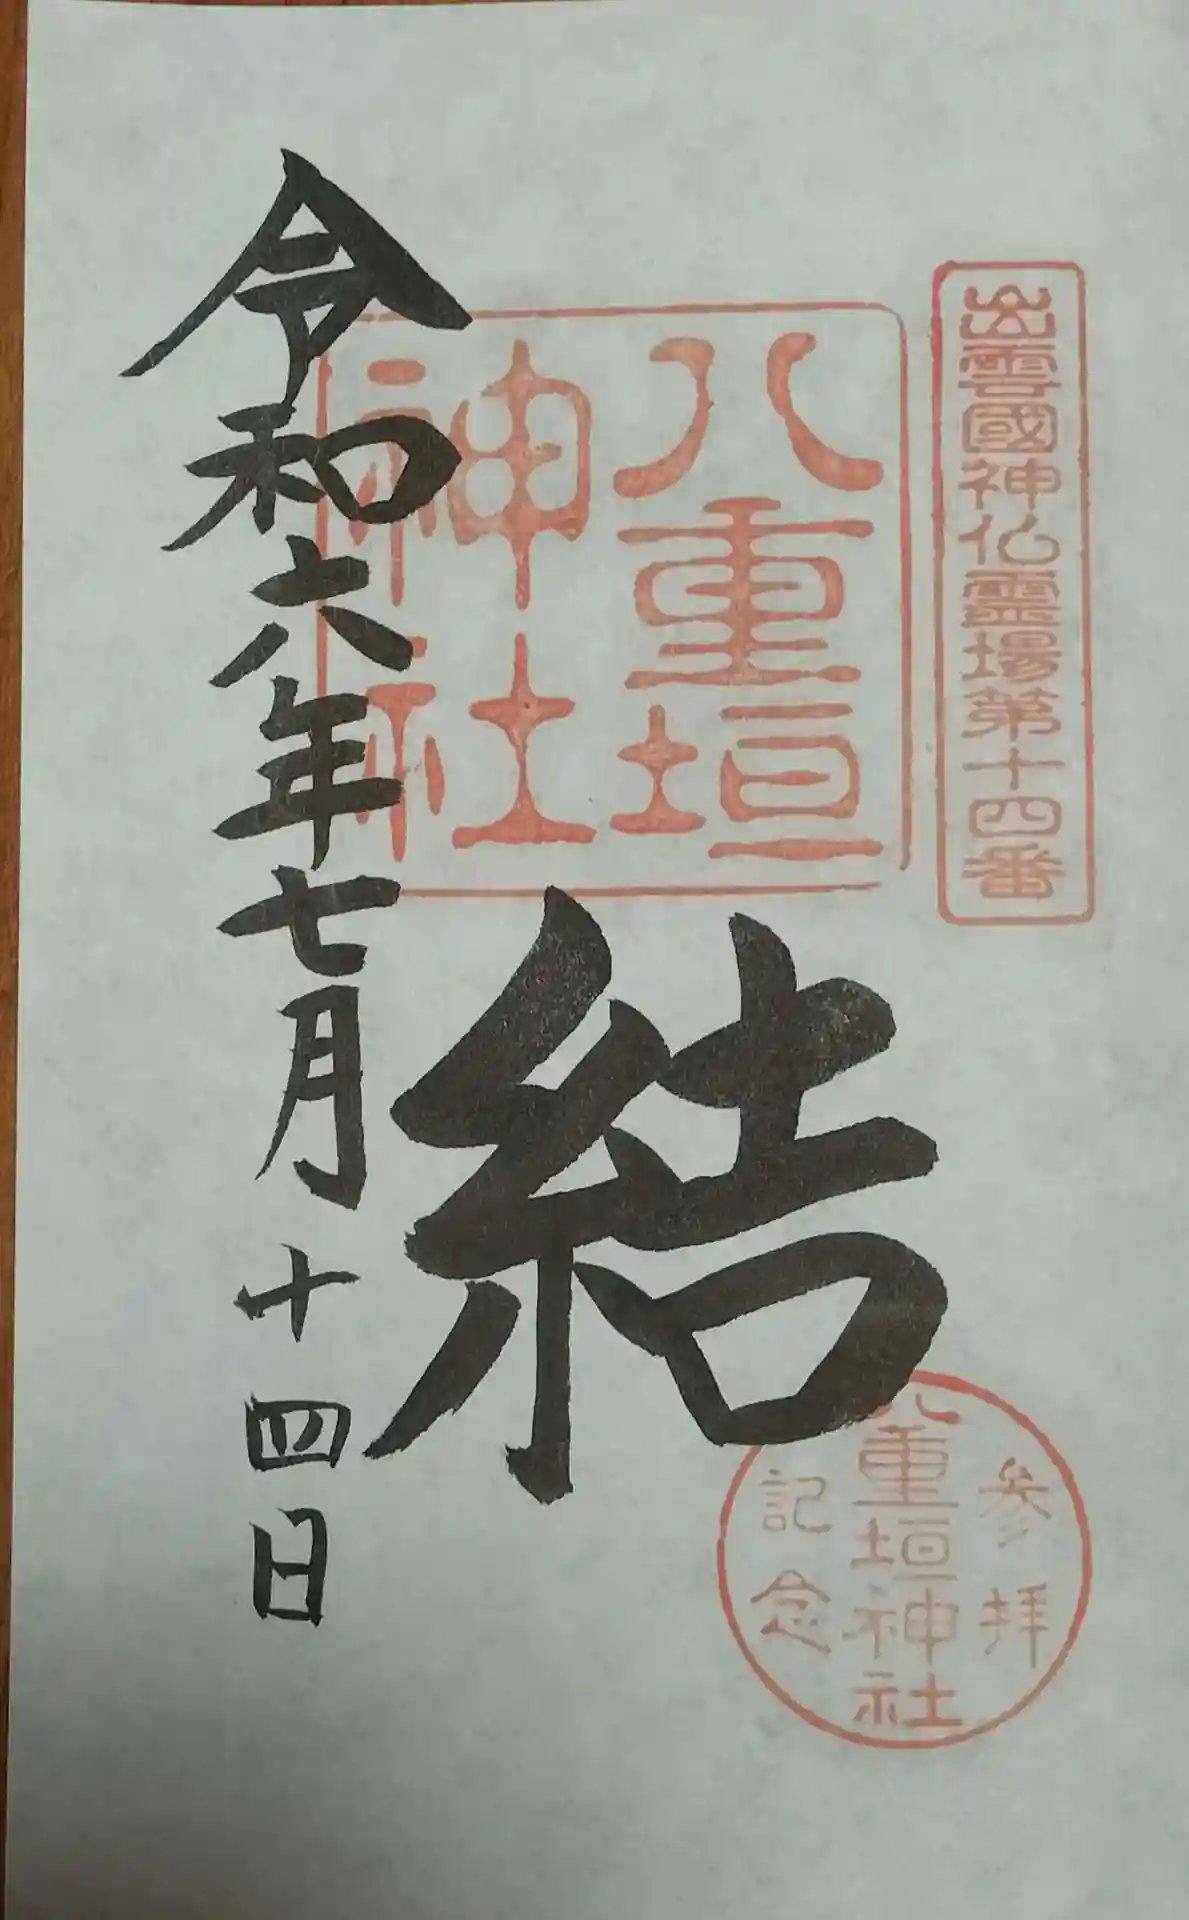 出雲國神仏霊場第十四番
八重垣
神社
結
令和六年七月十四日
参拝
八重垣神社
記念